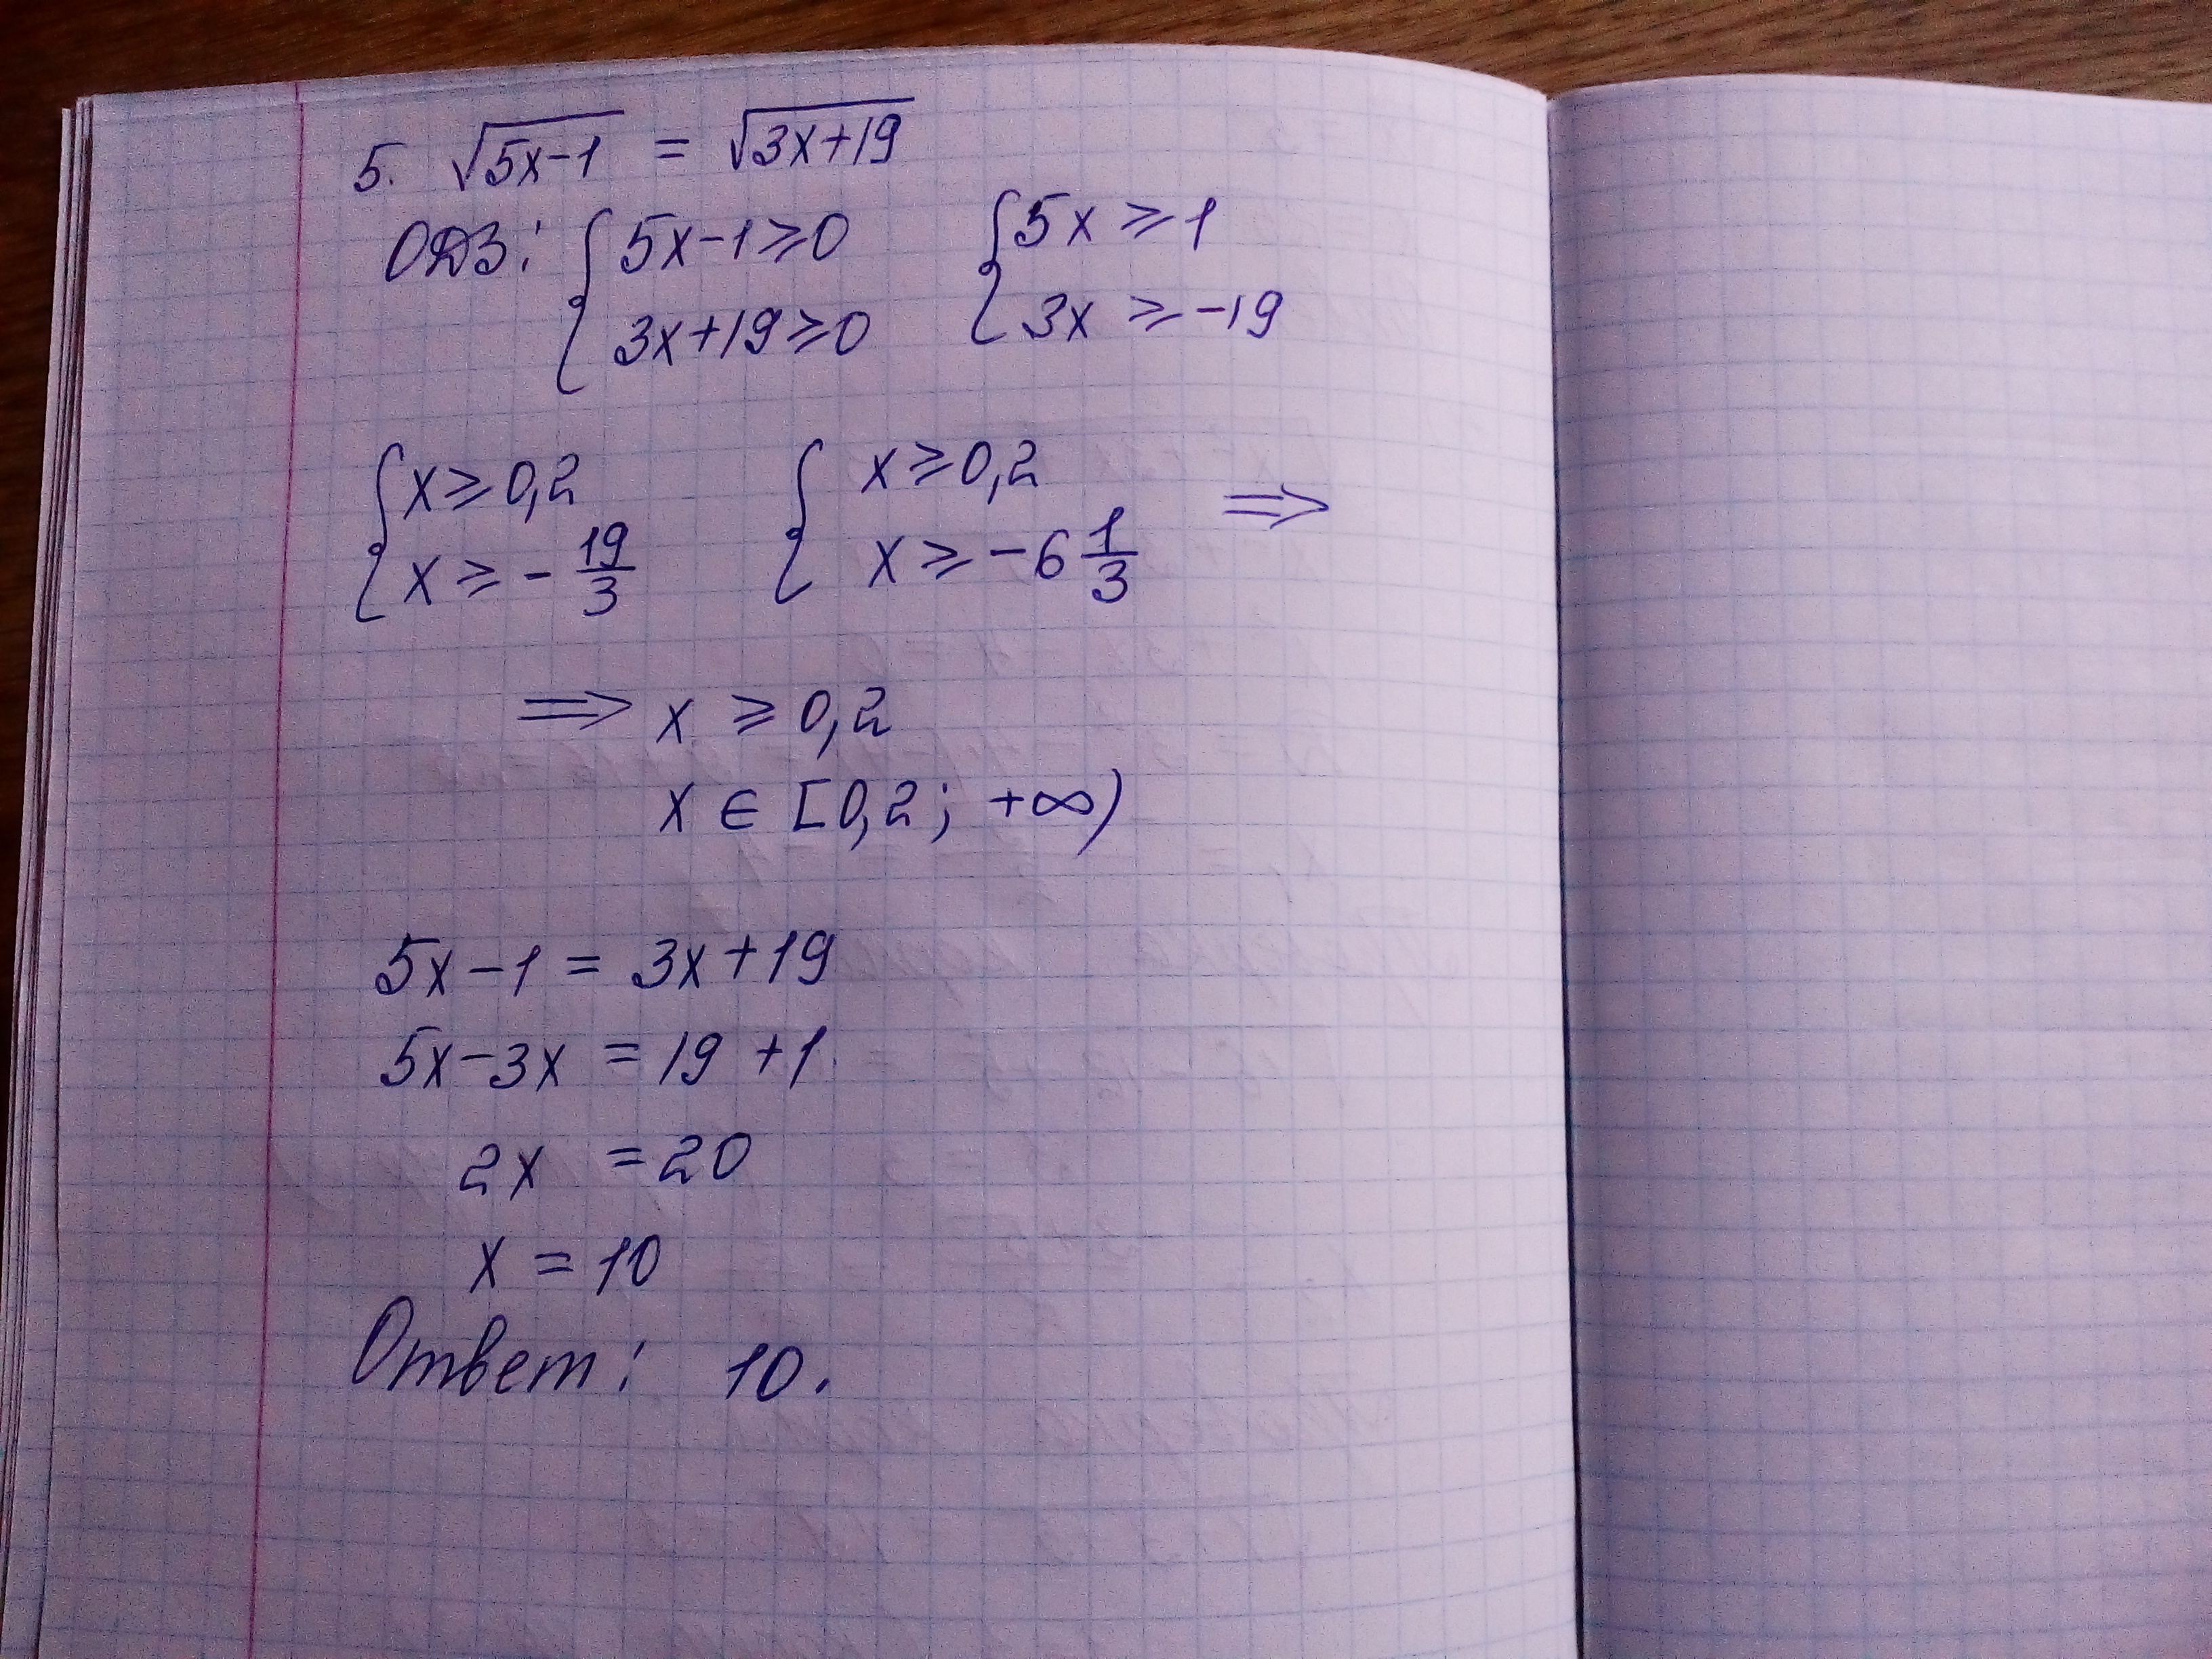 5. √(5x-1) = √(3x+19)
ОДЗ: { 5x-1≥0 { 5x ≥ 1
3x+19≥0 3x ≥ -19
{ x ≥ 0,2 { x ≥ 0,2 ⟹
x ≥ - 19/3 x ≥ -6 1/3
⟹ x ≥ 0,2
x ∈ [0,2; +∞)
5x-1 = 3x+19
5x-3x = 19+1
2x = 20
x = 10
Ответ: 10.